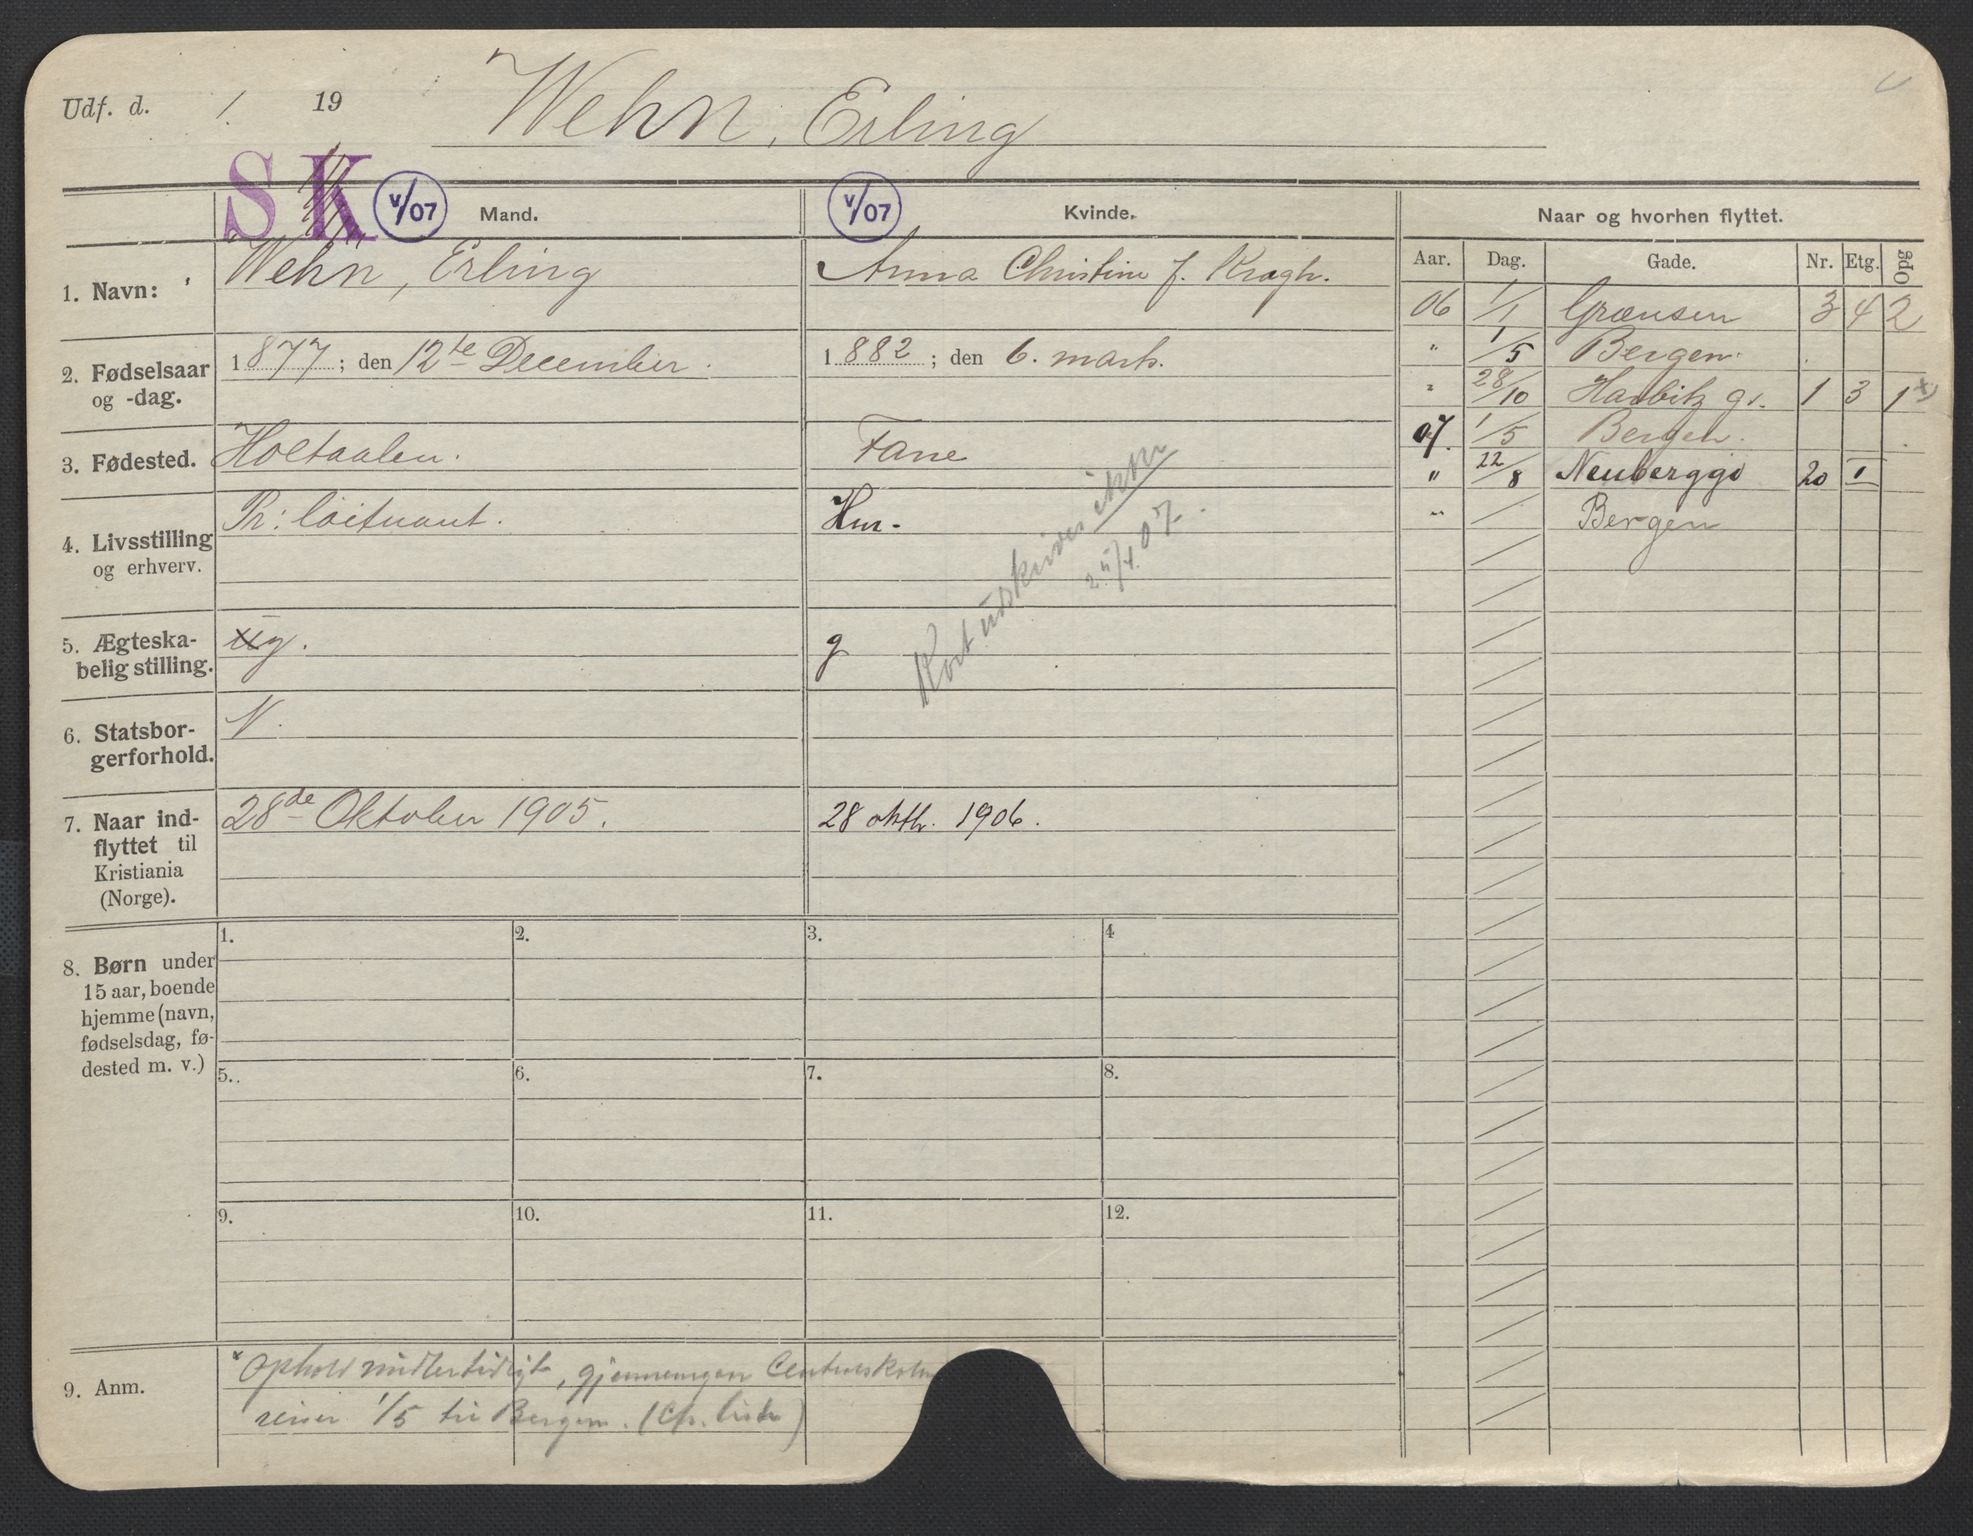 Udf. d. 1. 19
Wehn, Erling
S K V/07 Mand. V/07 Kvinde. Naar og hvorhen flyttet.
Aar. Dag. Gade. Nr. Etg. Opg
1. Navn: Wehn, Erling Anna Christine f. Kragh.
06 1/1 Grænsen 3 4 2
" 1/5 Bergen.
2. Fødselsaar og -dag. 1877; den 12te December. 1882; den 6. marts.
" 28/10 Harbitz g. 1 3 1 x)
07. 1/5 Bergen.
3. Fødested. Holtaalen. Fane
" 22/8 Neubergg 20 I
" Bergen
4. Livsstilling og erhverv. Pr: løitnant. Hu.
Kort udskrives ikke
07.
5. Ægteskabelig stilling. ug. g
6. Statsborgerforhold. N.
7. Naar indflyttet til Kristiania (Norge). 28de Oktober 1905. 28 oktbr. 1906.
8. Børn under 15 aar, boende hjemme (navn, fødselsdag, fødested m. v.)
1. 2. 3. 4
5. 6. 7. 8.
9. 10. 11. 12.
9. Anm. x Ophold midlertidigt, gjennemgaar Centralskolen
reiser 1/5 til Bergen. (Cfr. liste)